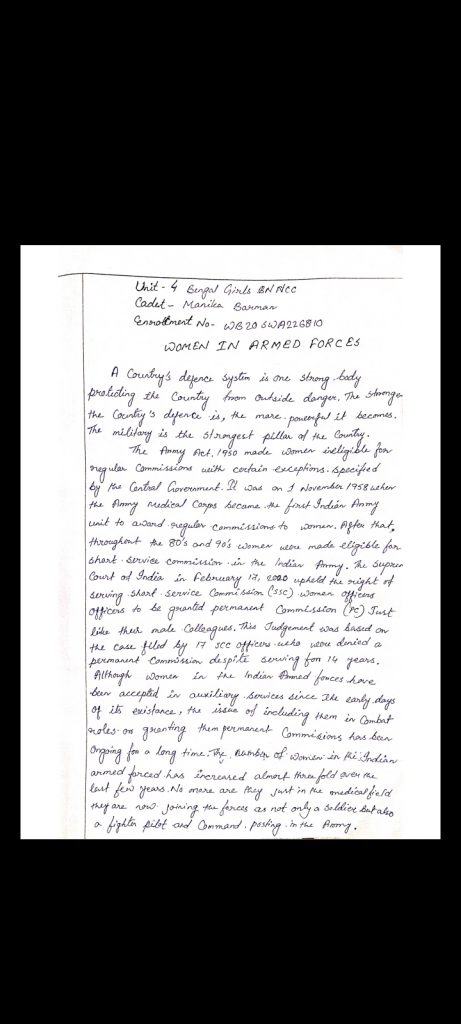 Unit - 4 Bengal Girls BN NCC
Cadet - Manika Barman
Enrollment No - WB20SWA226810
WOMEN IN ARMED FORCES
A Country's defence system is one strong body
protecting the Country from outside danger. The stronge
the Country's defence is, the more powerful it becomes.
The military is the strongest pillar of the Country.
The Army Act, 1950 made women ineligible for
regular Commissions with certain exceptions specified
by the Central Government. It was on 1 November 1958 when
the Army Medical Corps became the first Indian Army
unit to award regular commissions to women. After that,
throughout the 80's and 90's women were made eligible for
short service commission in the Indian Army. The Suprem
Court of India in February 17, 2020 upheld the right of
serving short service Commission (SSC) women officers
officers to be granted permanent Commission (PC) Just
like their male Colleagues. This Judgement was based on
the case filed by 17 SCC officers who were denied a
permanent Commission despite serving for 14 years.
Although women in the Indian Armed forces have
been accepted in auxiliary services since the early days
of its existance, the issue of including them in Combat
roles or granting them permanent Commissions has been
Ongoing for a long time. The number of women in the Indian
armed forced has increased almost three fold over the
last few years. No more are they just in the medical field
they are now joining the forces as not only a Soldier but also
a fighter pilot and Command posting in the Army.